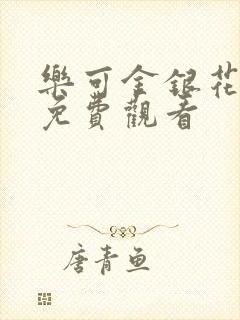 樂可金銀花
免費觀看
唐青鱼